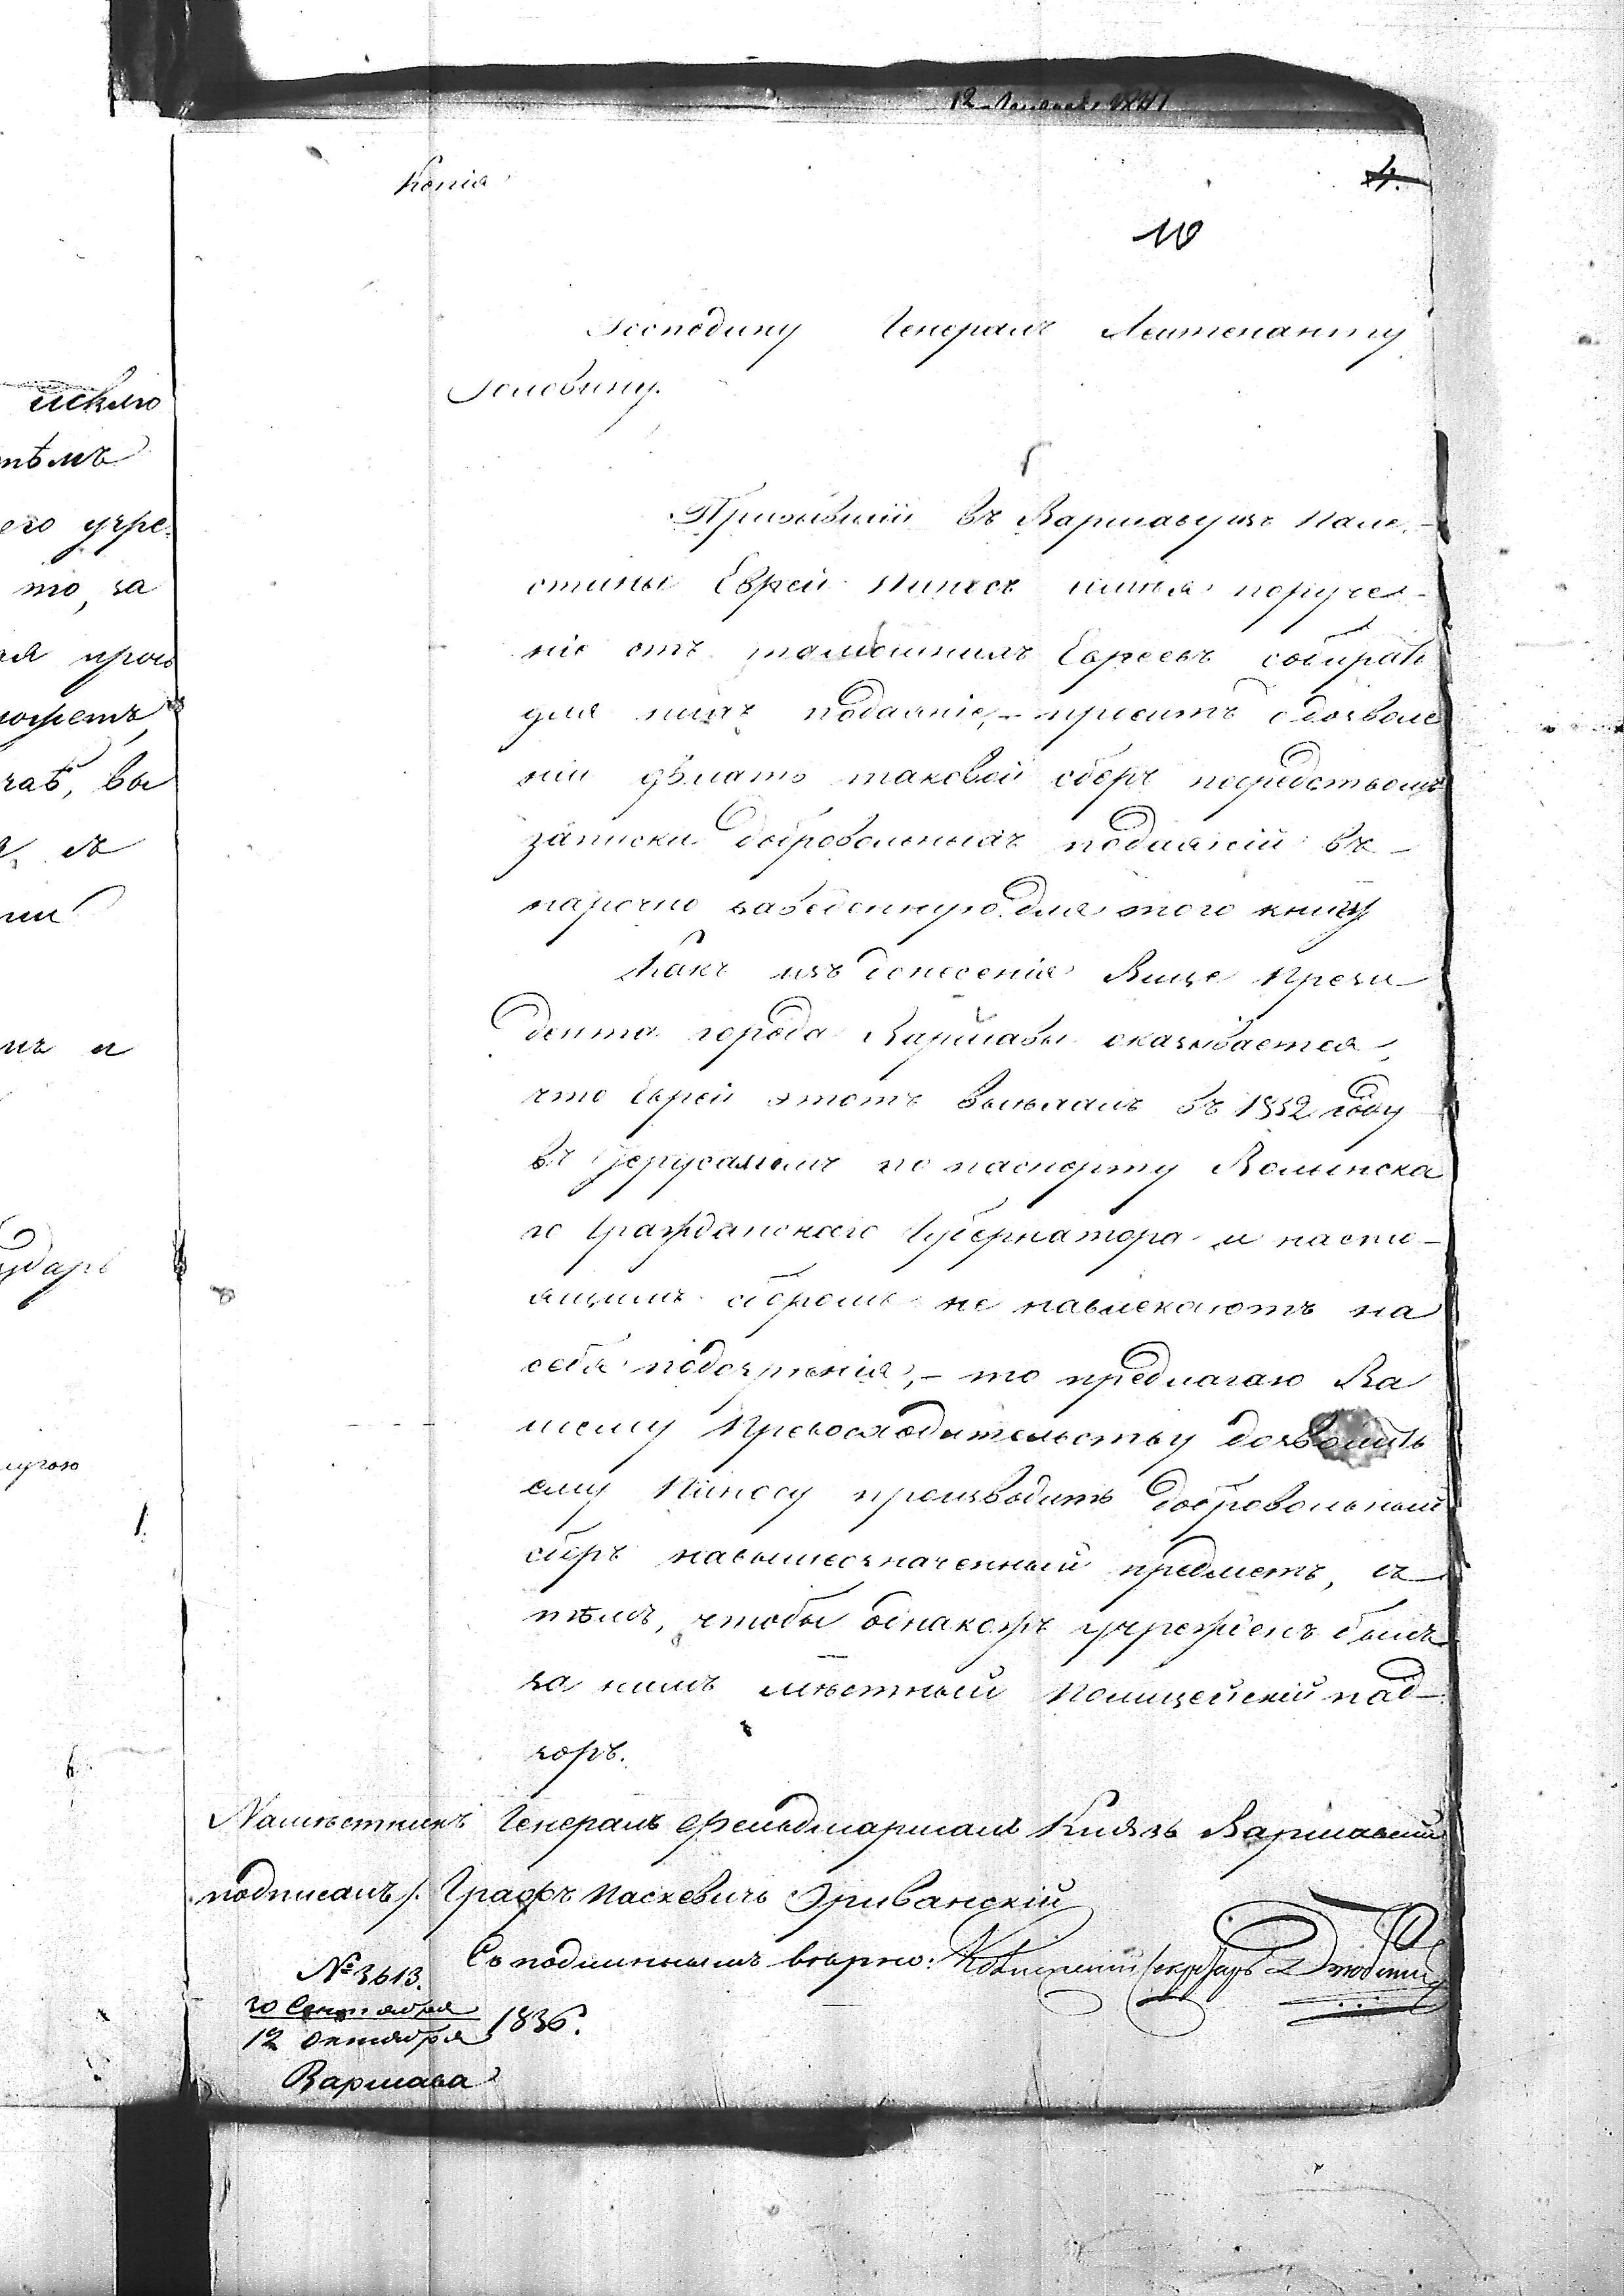 Копія
4.
10
Господину Генералъ Лейтенанту
Головину.
Прибывшій въ Варшаву изъ Пале-
стины Еврей Пинесъ имѣя поруче-
ніе отъ тамошнихъ Евреевъ собирать
для нихъ подаяніе,- проситъ о дозволе
ніи дѣлать таковой сборъ посредствомъ
записки добровольныхъ подаяній въ
нарочно заведенную для того книгу
Какъ изъ донесенія Вице Прези
дента города Варшавы оказывается,
что Еврей этотъ выѣхалъ въ 1832 году
въ Іерусалимъ по паспорту Волынска
го Гражданскаго Губернатора и насто-
ящимъ сборомъ не навлекаютъ на
себя подозрѣнія,- то предлагаю Ва
шему Превосходительству дозволить
ему Пинесу производить добровольный
сборъ на вышеозначенный предметъ, съ
тѣмъ, чтобы однакожъ учрежденъ былъ
за нимъ мѣстный Полицейскій над-
зоръ.
Намѣстникъ Генералъ Фельдмаршалъ Князь Варшавскій
подписалъ/. Графъ Паскевичъ Эриванскій
Съ подлиннымъ вѣрно: Секретарь
№ 3613.
30 Сентября
12 Октября 1836.
Варшава
искаго
тѣмъ
его учре
то, за
вы
съ
и
ударь